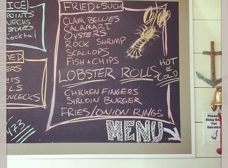 ICE
POINTS
NECKS
STONES
Cocktail
FRIED & SUCH
CLAM BELLIES
CALAMARI
OYSTERS
ROCK SHRIMP
SCALLOPS
FISH & CHIPS
LOBSTER ROLLS HOT or COLD
CHICKEN FINGERS
SIRLOIN BURGER
FRIES/ONION RINGS
MENU